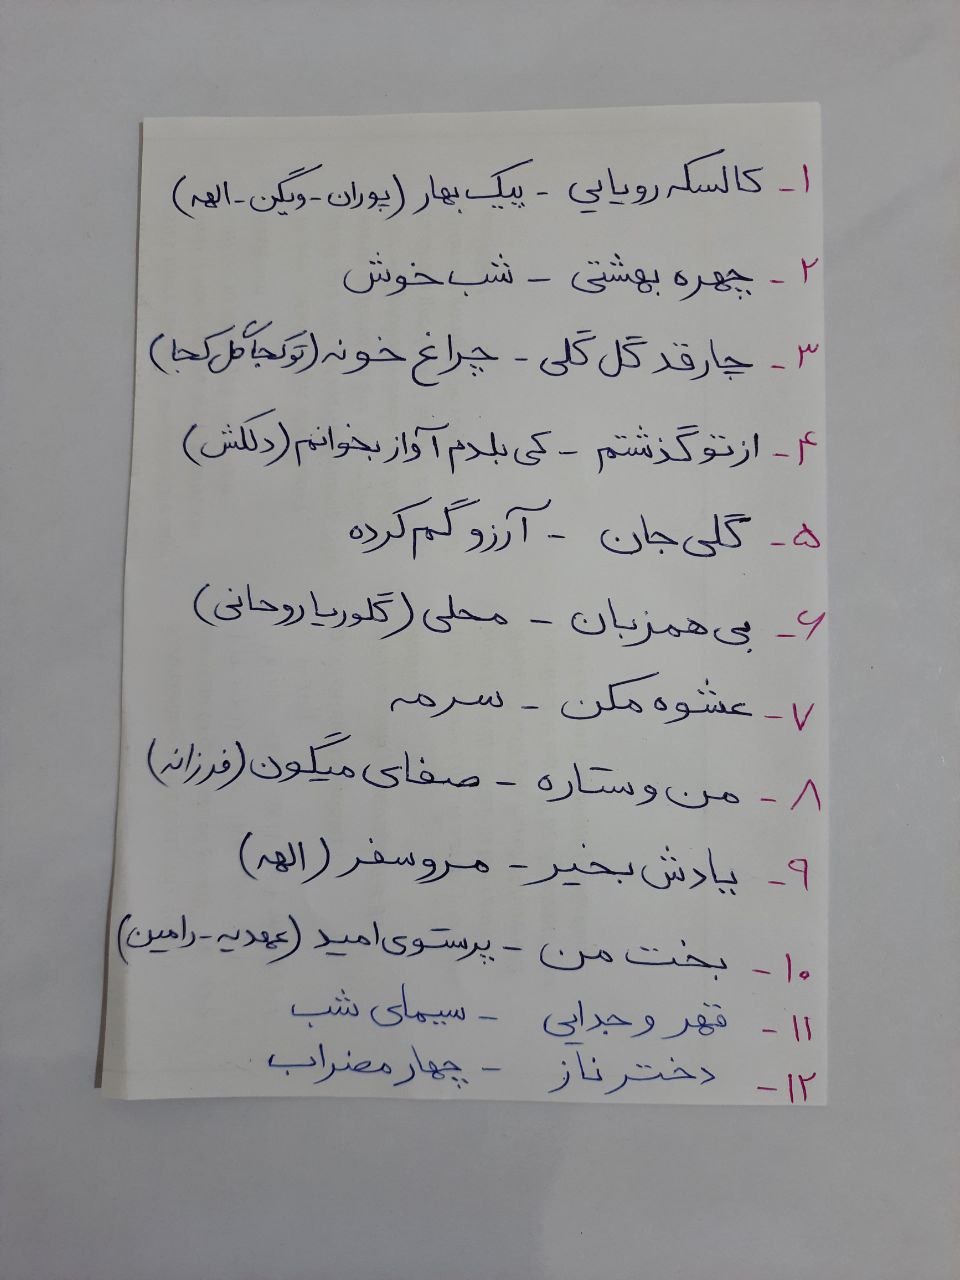 ۱- کالسکه رویایي - پیک بهار (پوران - ویگن - الهه)
۲- چهره بهشتی - شب خوش
۳- چارقد گل گلی - چراغ خونه (تو کجا گل کجا)
۴- از تو گذشتم - کی بلدم آواز بخوانم (دلکش)
۵- گلی جان - آرزو گم کرده
۶- بی همزبان - محلی (گلوریا روحانی)
۷- عشوه مکن - سرمه
۸- من و ستاره - صفای میگون (فرزانه)
۹- یادش بخیر - مرو سفر (الهه)
۱۰- بخت من - پرستوی امید (عهدیه - رامین)
۱۱- قهر و جدایی - سیمای شب
۱۲- دختر ناز - چهار مضراب